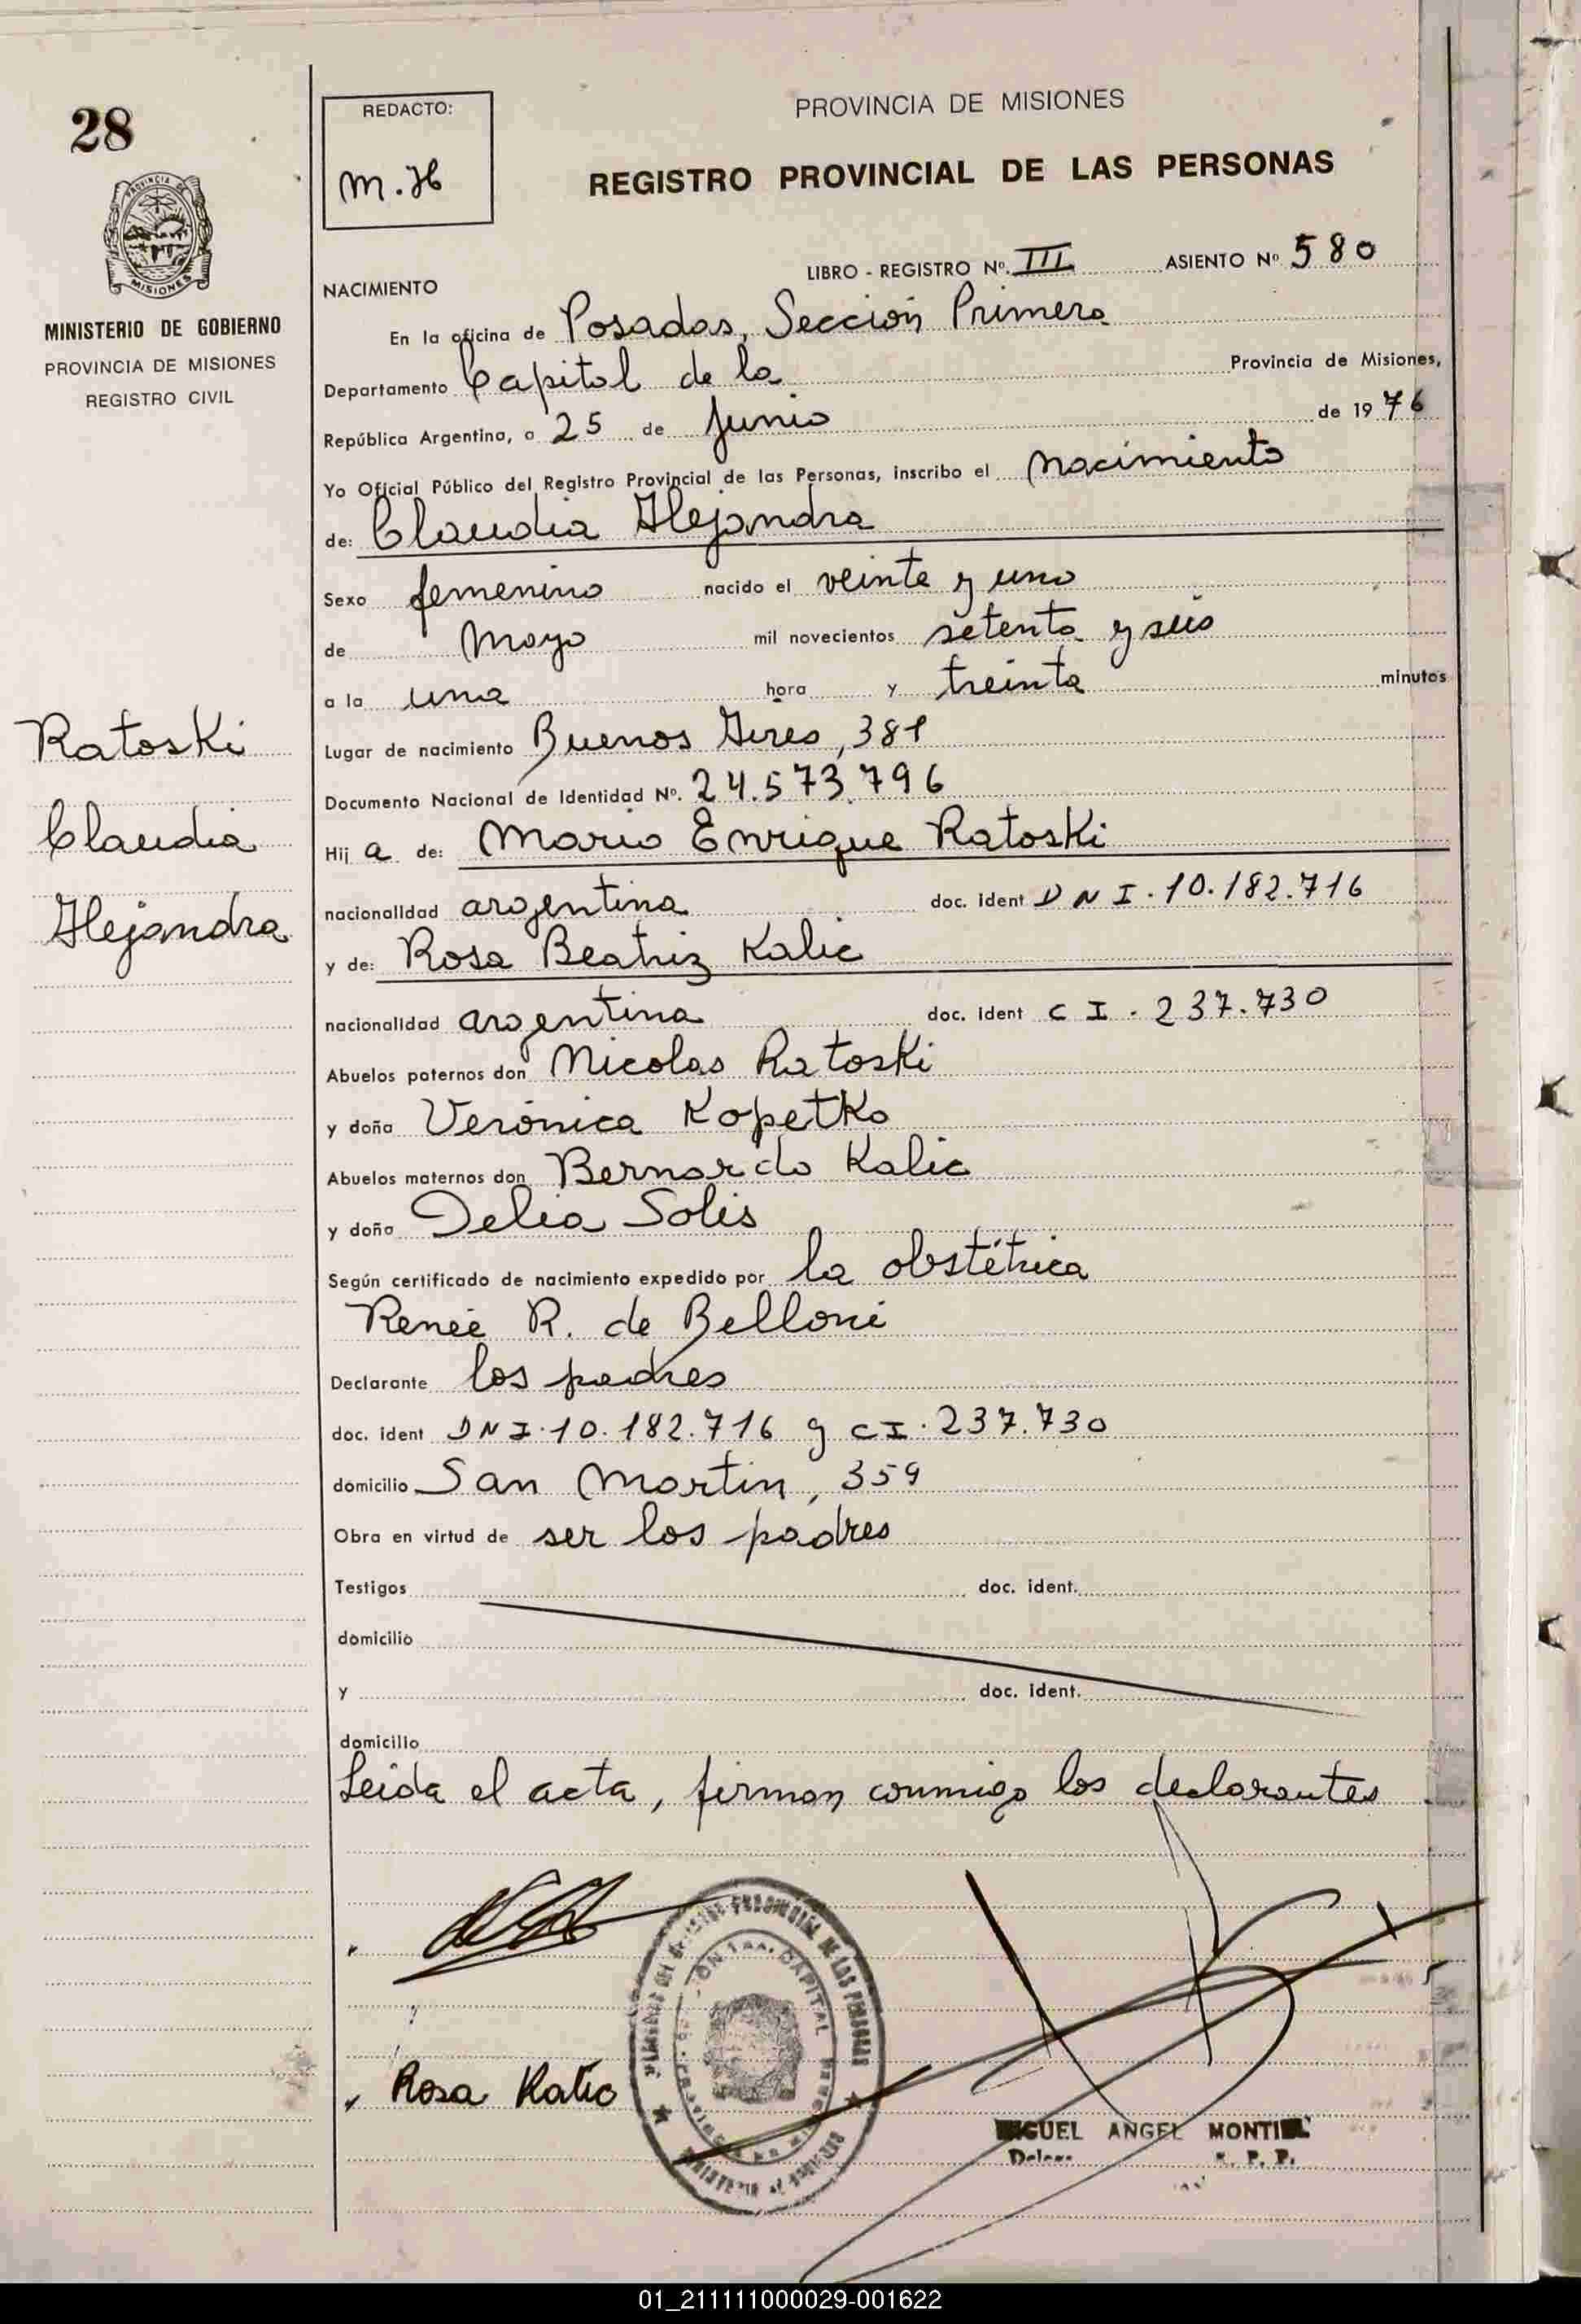 28
PROVINCIA DE
MISIONES
MINISTERIO DE GOBIERNO
PROVINCIA DE MISIONES
REGISTRO CIVIL
Ratoski
Claudia
Alejandra
REDACTO:
M.H
PROVINCIA DE MISIONES
REGISTRO PROVINCIAL DE LAS PERSONAS
LIBRO - REGISTRO Nº. III ASIENTO Nº 580
NACIMIENTO
En la oficina de Posadas, Sección Primera
Departamento Capital de la Provincia de Misiones,
República Argentina, a 25 de Junio de 1976
Yo Oficial Público del Registro Provincial de las Personas, inscribo el nacimiento
de: Claudia Alejandra
Sexo femenino nacido el veinte y uno
de Mayo mil novecientos setenta y seis
a la una hora y treinta minutos
Lugar de nacimiento Buenos Aires, 381
Documento Nacional de Identidad Nº. 24.573.796
Hij a de: Mario Enrique Ratoski
nacionalidad argentina doc. ident DNI.10.182.716
y de: Rosa Beatriz Kalic
nacionalidad argentina doc. ident CI.237.730
Abuelos paternos don Nicolas Ratoski
y doña Verónica Kopetko
Abuelos maternos don Bernardo Kalic
y doña Delia Solis
Según certificado de nacimiento expedido por la obstétrica
Reneé R. de Belloni
Declarante los padres
doc. ident DNI.10.182.716 y CI.237.730
domicilio San Martin, 359
Obra en virtud de ser los padres
Testigos doc. ident.
domicilio
y doc. ident.
domicilio
Leida el acta, firman conmigo los declarantes
Rosa Kalic
CAPITAL
MIGUEL ANGEL MONTIEL
R. P. P.
01_211111000029-001622